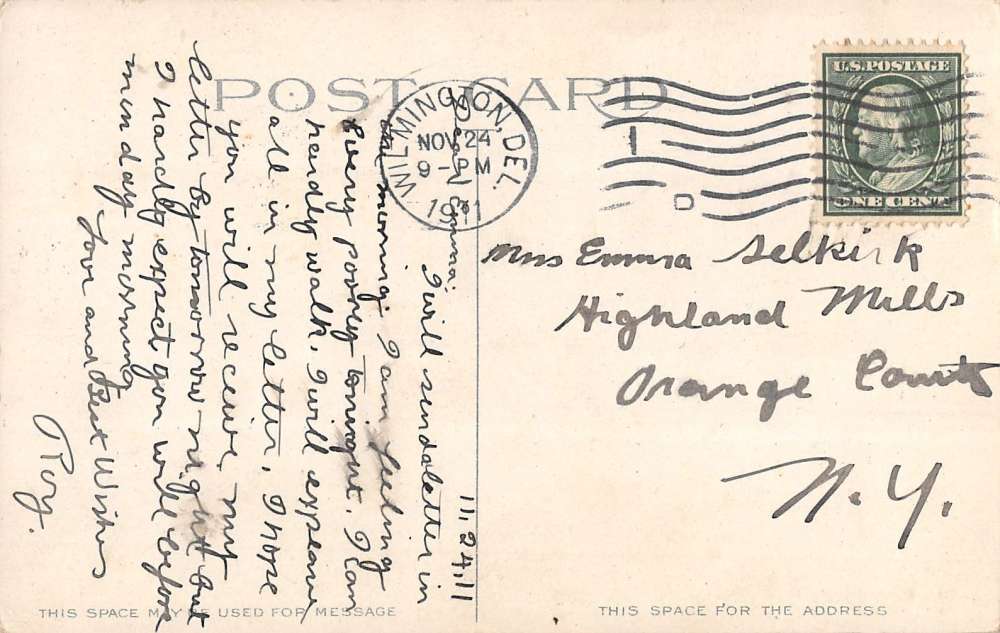 POST CARD
WILMINGTON, DEL.
NOV 24
9 - PM
1911
D
U.S. POSTAGE
ONE CENT
11.24.11
Dear Emma:
I will send a letter in
the morning. I am feeling
every poorly tonight. I can
hardly walk. I will explain
all in my letter. I hope
you will receive my
letter by tomorrow night but
I hardly expect you will before
monday morning
Love and Best Wishes
Roy.
Miss Emma Selkirk
Highland Mills
Orange County
N.Y.
THIS SPACE MAY BE USED FOR MESSAGE
THIS SPACE FOR THE ADDRESS